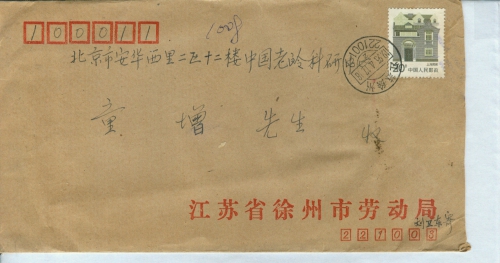 100011
1008
北京市安华西里二区十二楼中国老龄科研
童增 先生 收
20
中国人民邮政
江苏省徐州市劳动局
221003